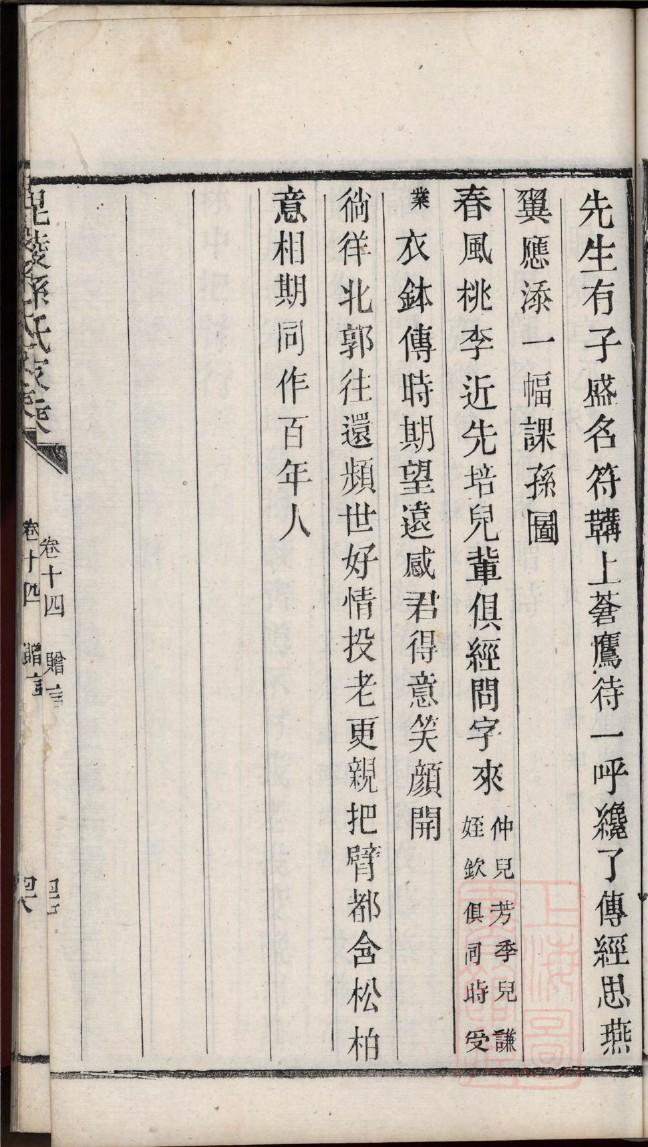 先生有子盛名符韝上蒼鷹待一呼纔了傳經思燕
翼應添一幅課孫圖
春風桃李近先培兒輩俱經問字來仲兒芳季兒謙
姪欽俱同時受
業衣鉢傳時期望遠感君得意笑顏開
徜徉北郭往還頻世好情投老更親把臂都含松柏
意相期同作百年人
毘陵孫氏家乘
卷十四 贈言
卷十四 贈言
上海圖